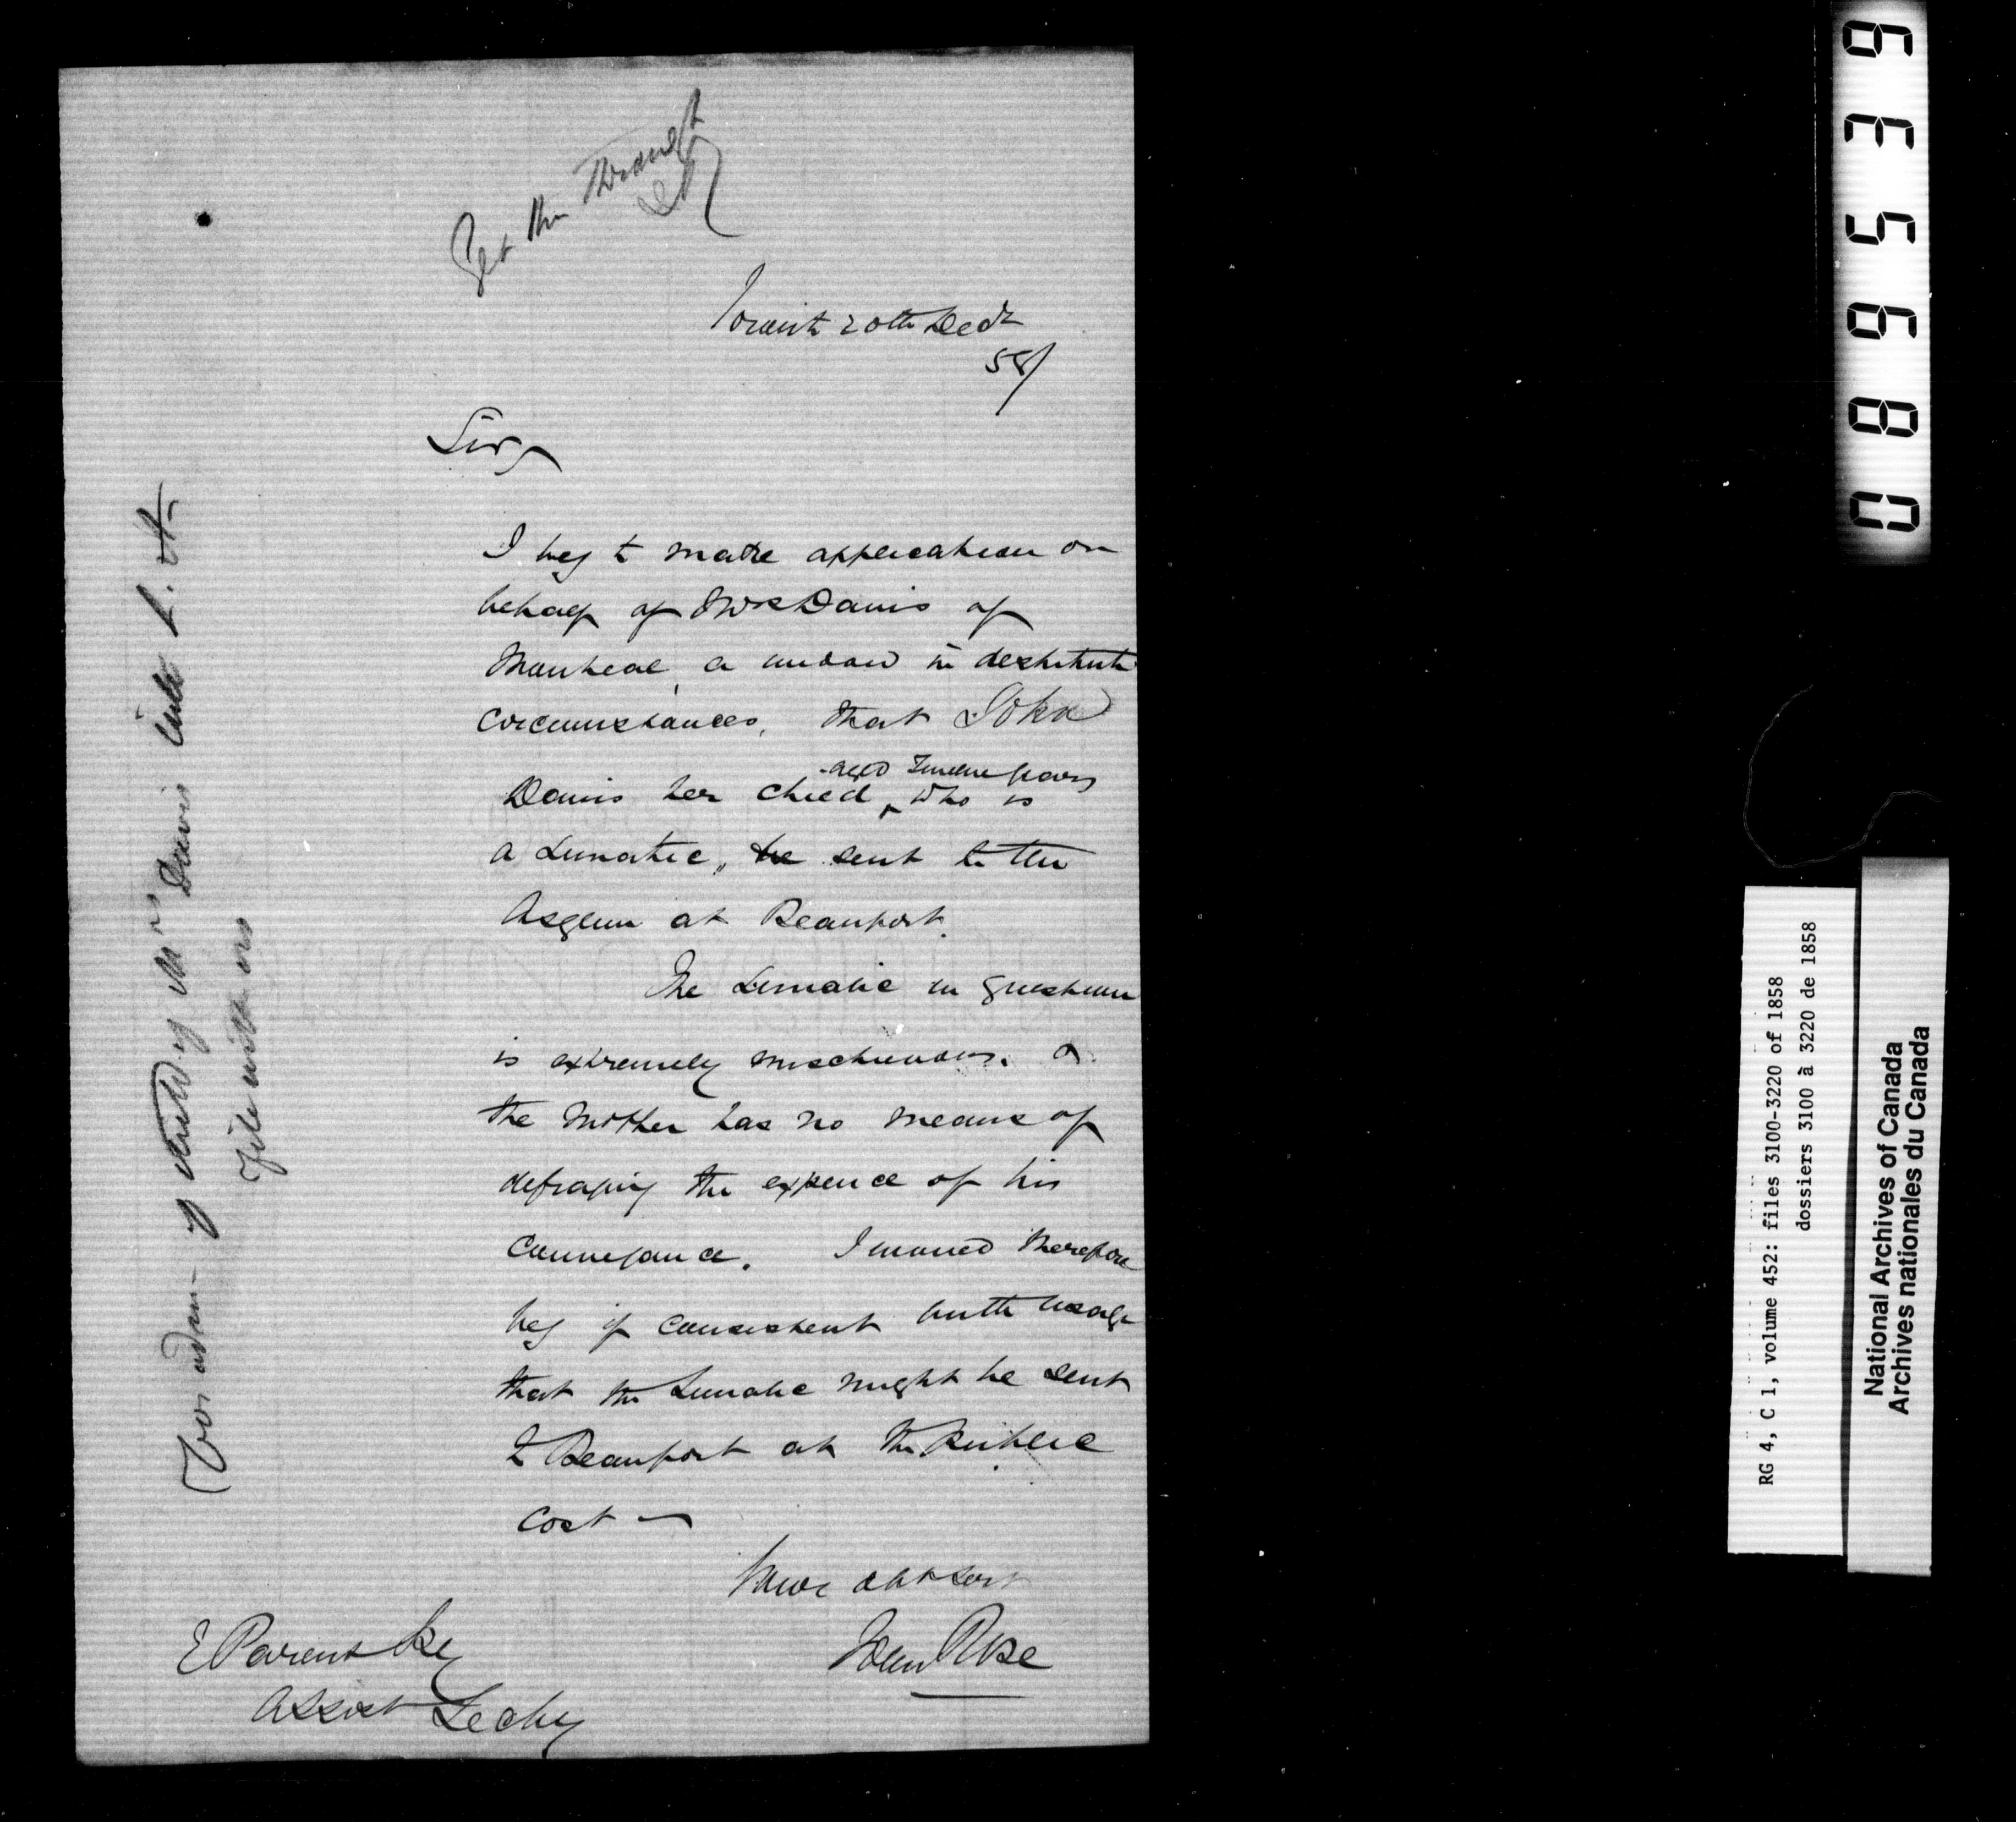 Get the
Toronto 20th Decr
58/
Sir,
I beg to make application on
behalf of Mrs Davis of
Montreal, a widow in destitute
circumstances, that John
aged Twelve years
Davis her child, who is
a Lunatic, be sent to the
Asylum at Beauport.
The Lunatic in question
is extremely mischievous. &
the Mother has no means of
defraying the expence of his
Conveyance. I would therefore
beg if consistent with usage
that the Lunatic might be sent
to Beauport at the Public
Cost —
Your obt Sert
John Rose
E Parent Esq
Assist Secty
For adm- of child of Mrs Davis into L. A-
File with ers
RG 4, C 1, volume 452: files 3100-3220 of 1858
dossiers 3100 à 3220 de 1858
National Archives of Canada
Archives nationales du Canada
085639